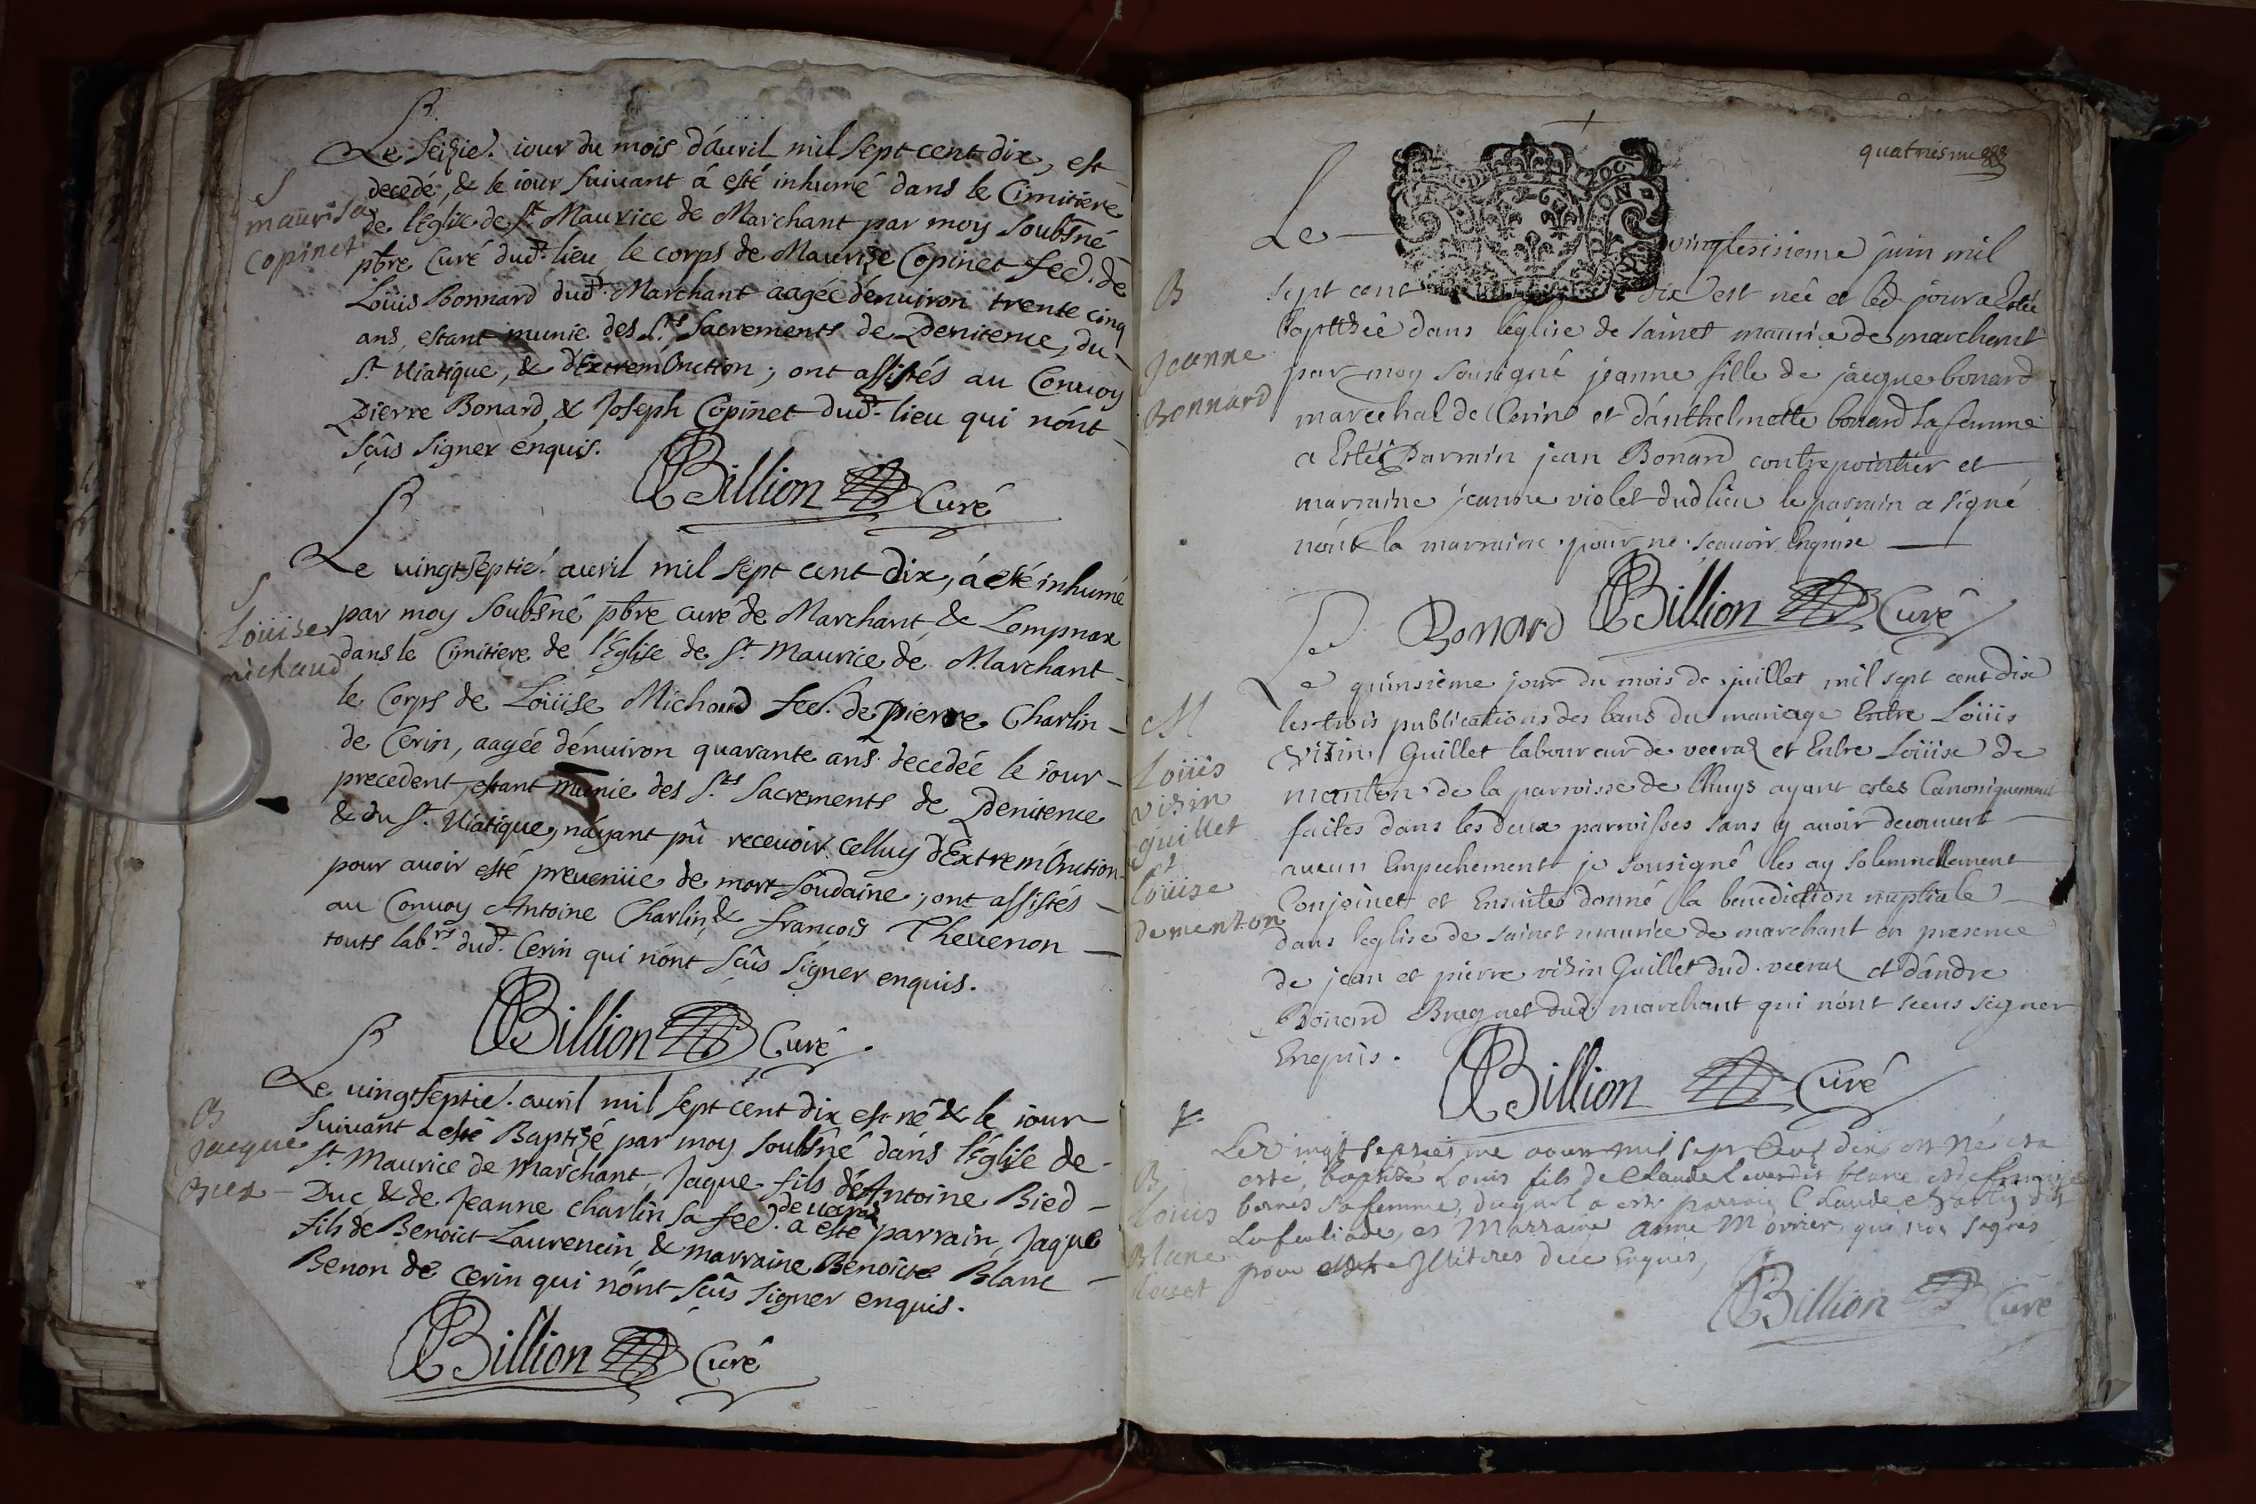 Le seizie. iour du mois d'auril mil sept cent dix, est
decedé, & le iour suiuant á esté inhumé dans le Cimitiere
S
maurise
Copinet
de l'Eglise de St. Maurice de Marchant par moy soubsné
pbre Curé dud. lieu le corps de Maurize Copinet fee. de
Loüis Bonnard dud. Marchant aagée d'enuiron trente cinq
ans, estant munie des Sts. Sacrements de Penitence, du
St. Uiatique, & d'Extrem'Onction; ont assistés au Conuoy
Pierre Bonard, & Joseph Copinet dud. lieu qui n'ont
sçûs signer enquis.
Billion Curé
Le uingtseptie. auril mil sept cent dix, á esté inhumé
S
Loüise
michaud
par moy soubsné pbre curé de Marchant, & Lompnax
dans le Cimitiere de l'Eglise de St. Maurice de Marchant
le Corps de Loüise Michoud fee. de Pierre Charlin
de Cerin, aagée d'enuiron quarante ans decedée le iour
precedent, estant munie des Sts. Sacrements de Penitence
& du St. Uiatique, n'ayant pû receuoir celluy d'Extrem'Onction
pour auoir esté preuenüe de mort soudaine; ont assistés
au Conuoy Antoine Charlin, & françois Theuenon
touts labrs. dud. Cerin qui n'ont sçûs signer enquis.
Billion Curé
Le uingtseptie. auril mil sept cent dix est né & le iour
B
Jacque
Bied
suiuant a esté Baptizé par moy soubsné dans l'Eglise de
St. Maurice de Marchant, Jaque fils d'Antoine Bied
Duc & de Jeanne Charlin sa fee. a esté parrain, Jaque
fils de Benoict Laurencin & marraine Benoicte Blanc
Benon de Cerin qui n'ont sçûs signer enquis.
Billion Curé
quatriesme
Le vingtroisieme juin mil
B
Jeanne
Bonnard
sept cent dix est née et led jour a Estée
baptisée dans l'eglise de sainct maurice de marchant
par moy sousigné jeanne fille de jacque bonard
marechal de Cerin et d'anthelmette bonard sa femme
a Esté parrain jean Bonard contrepointier et
marraine jeanne violet dud lieu le parrain a signé
non la marraine pour ne sçauoir Enquise
Bonard Billion Curé
Le quinsieme jour du mois de juillet mil sept cent dix
M
Loüis
vizin
guillet
et
loüise
dementon
les trois publications des bans du mariage Entre Loüis
vizin Guillet laboureur de veeraz et Entre Loüise de
menton de la parroisse de lhuys ayant estes Canoniquement
faites dans les deux parroisses sans y auoir decouuert
aucun Empechement je sousigné les ay solemnellement
Conjoinct et Ensuite donné la benediction nuptiale
dans l'eglise de sainct maurice de marchant en presence
de jean et pierre vizin Guillet dud. veeraz et d'andre
Bonard Bruguet dud. marchant qui n'ont sceus signer
Enquis.
Billion Curé
Le vingt septiesme aoust mil sept Cent dix est né et a
B
Louis
Blanc
esté baptizé Louis fils de Claude blanc et de françoise
sa femme, duquel a esté parrain Claude
et Marraine Anne qui non signes
pour estre Illiteres deue Enquis,
Billion Curé